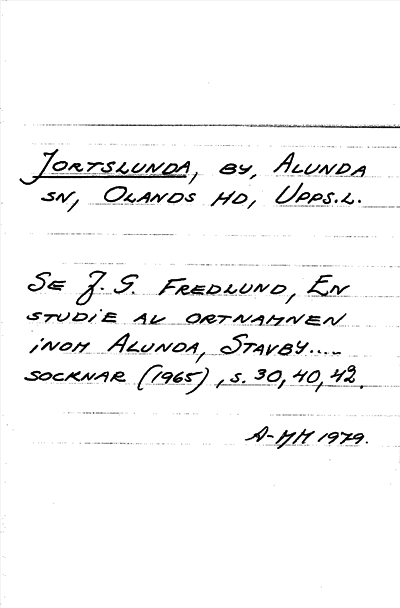 JORTSLUNDA, BY, ALUNDA
SN, OLANDS HD, UPPS.L.
SE J. G. FREDLUND, EN
STUDIE AV ORTNAMNEN
INOM ALUNDA, STAVBY....
SOCKNAR (1965), S. 30, 40, 42.
A-MM 1979.